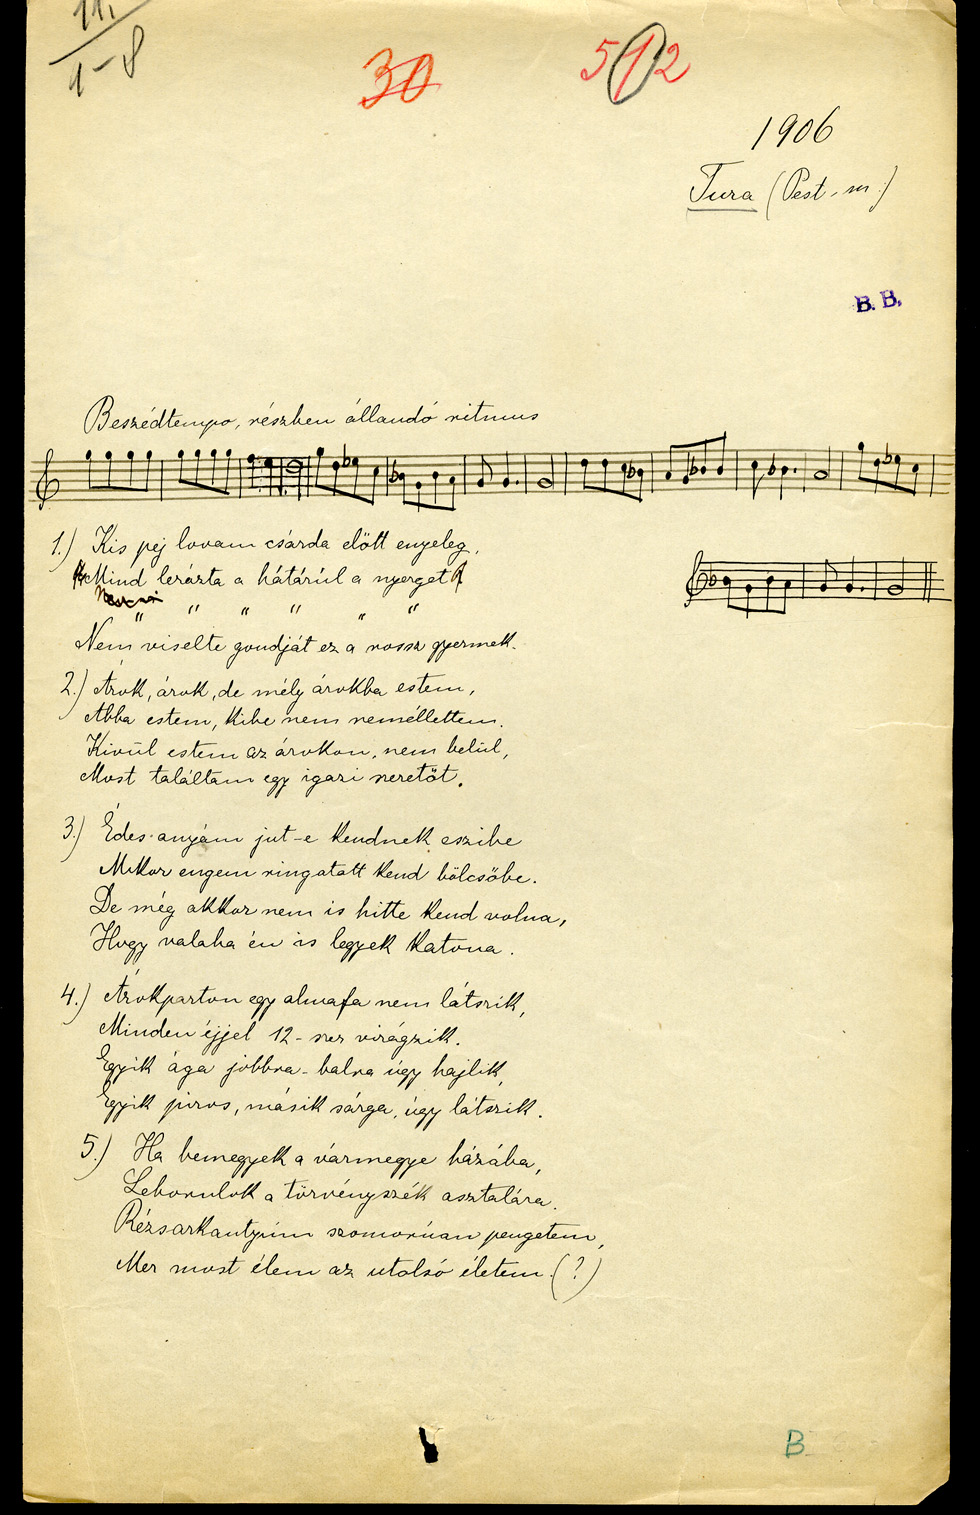 11,
1-8
30
512
1906
Tura (Pest. m.)
B. B.
Beszédtempo, részben állandó ritmus
1.) Kis pej lovam csárda előtt enyeleg,
Mind lerázta a hátárúl a nyerget
" " " " " "
Nem viselte gondját ez a rossz gyermek.
2.) Árok, árok, de mély árokba estem,
Abba estem, kibe nem neméllettem.
Kivűl estem az árokon, nem belűl,
Most találtam egy igazi szeretőt.
3.) Édes anyám jut-e kendnek eszibe
Mikor engem ringatott kend bölcsőbe.
De még akkor nem is hitte kend volna,
Hogy valaha én is legyek katona.
4.) Árokparton egy almafa nem látszik,
Minden éjjel 12-szer virágzik.
Egyik ága jobbra-balra úgy hajlik,
Egyik piros, másik sárga, úgy látszik.
5.) Ha bemegyek a vármegye házába,
Leborulok a törvényszék asztalára.
Rézsarkantyúm szomorúan pengetem,
Mer most élem az utolsó életem. (?)
B